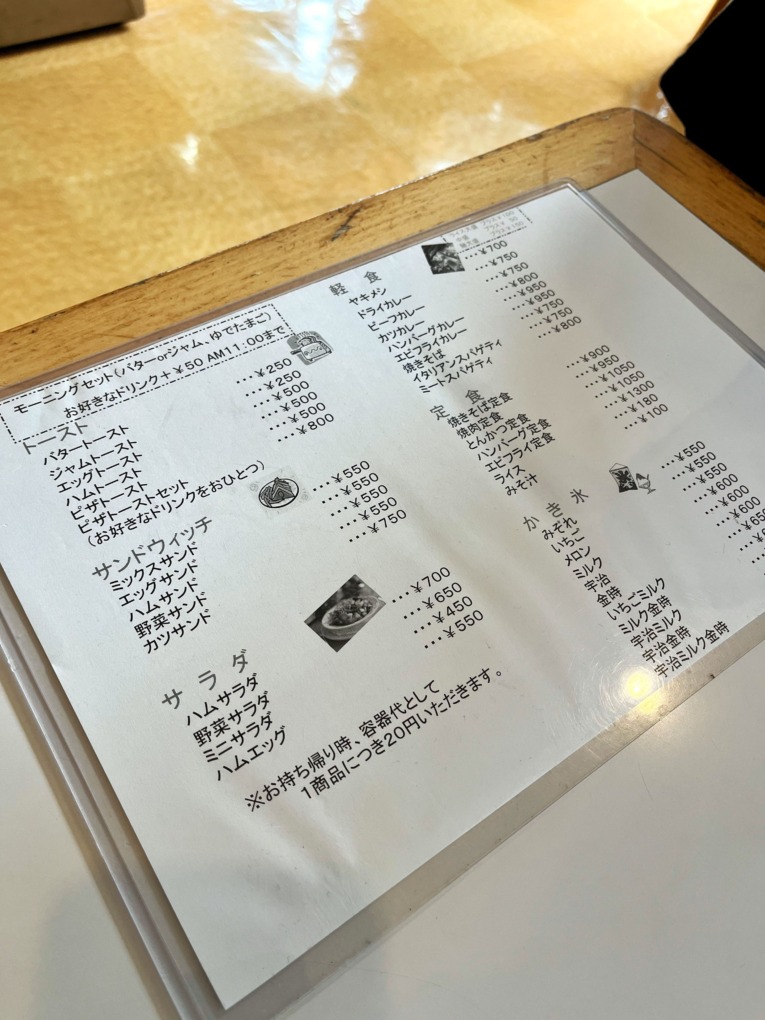 モーニングセット(バターorジャム、ゆでたまご)
お好きなドリンク+¥50 AM11:00まで
トースト
バタートースト …¥250
ジャムトースト …¥250
エッグトースト …¥500
ハムトースト …¥500
ピザトースト …¥500
ピザトーストセット …¥800
(お好きなドリンクをおひとつ)
サンドウィッチ
ミックスサンド …¥550
エッグサンド …¥550
ハムサンド …¥550
野菜サンド …¥550
カツサンド …¥750
サラダ
ハムサラダ …¥700
野菜サラダ …¥650
ミニサラダ …¥450
ハムエッグ …¥550
※お持ち帰り時、容器代として
1商品につき20円いただきます。
軽食
ヤキメシ …¥700
ドライカレー …¥750
ビーフカレー …¥750
カツカレー …¥800
ハンバーグカレー …¥950
エビフライカレー …¥950
焼きそば …¥750
イタリアンスパゲティ …¥750
ミートスパゲティ …¥800
定食
焼きそば定食 …¥900
焼肉定食 …¥950
とんかつ定食 …¥1050
ハンバーグ定食 …¥1050
エビフライ定食 …¥1300
ライス …¥180
みそ汁 …¥100
かき氷
みぞれ …¥550
いちご …¥550
メロン …¥600
ミルク …¥600
宇治 …¥600
金時
いちごミルク
ミルク金時
宇治ミルク
宇治金時
宇治ミルク金時